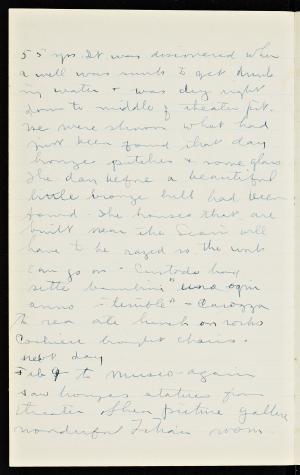 55 yrs. It was discovered when
a well was sunk to get drink
ing water & was dug right
down to middle of theater pit.
We were shown what had
just been found that day
bronze pitcher & some glass
The day before a beautiful
little bronze bull had been
found. The houses that are
built near the Scavi will
have to be razed so the work
can go on - Custode has
sette bambini "una ogni
anno - terrible" - Carozza
to rea ate lunch on rocks
Cochiere brought chairs.
next day
Feb 9 to Museo again
saw bronzes statues from
theater often picture gallery
wonderful Titian room